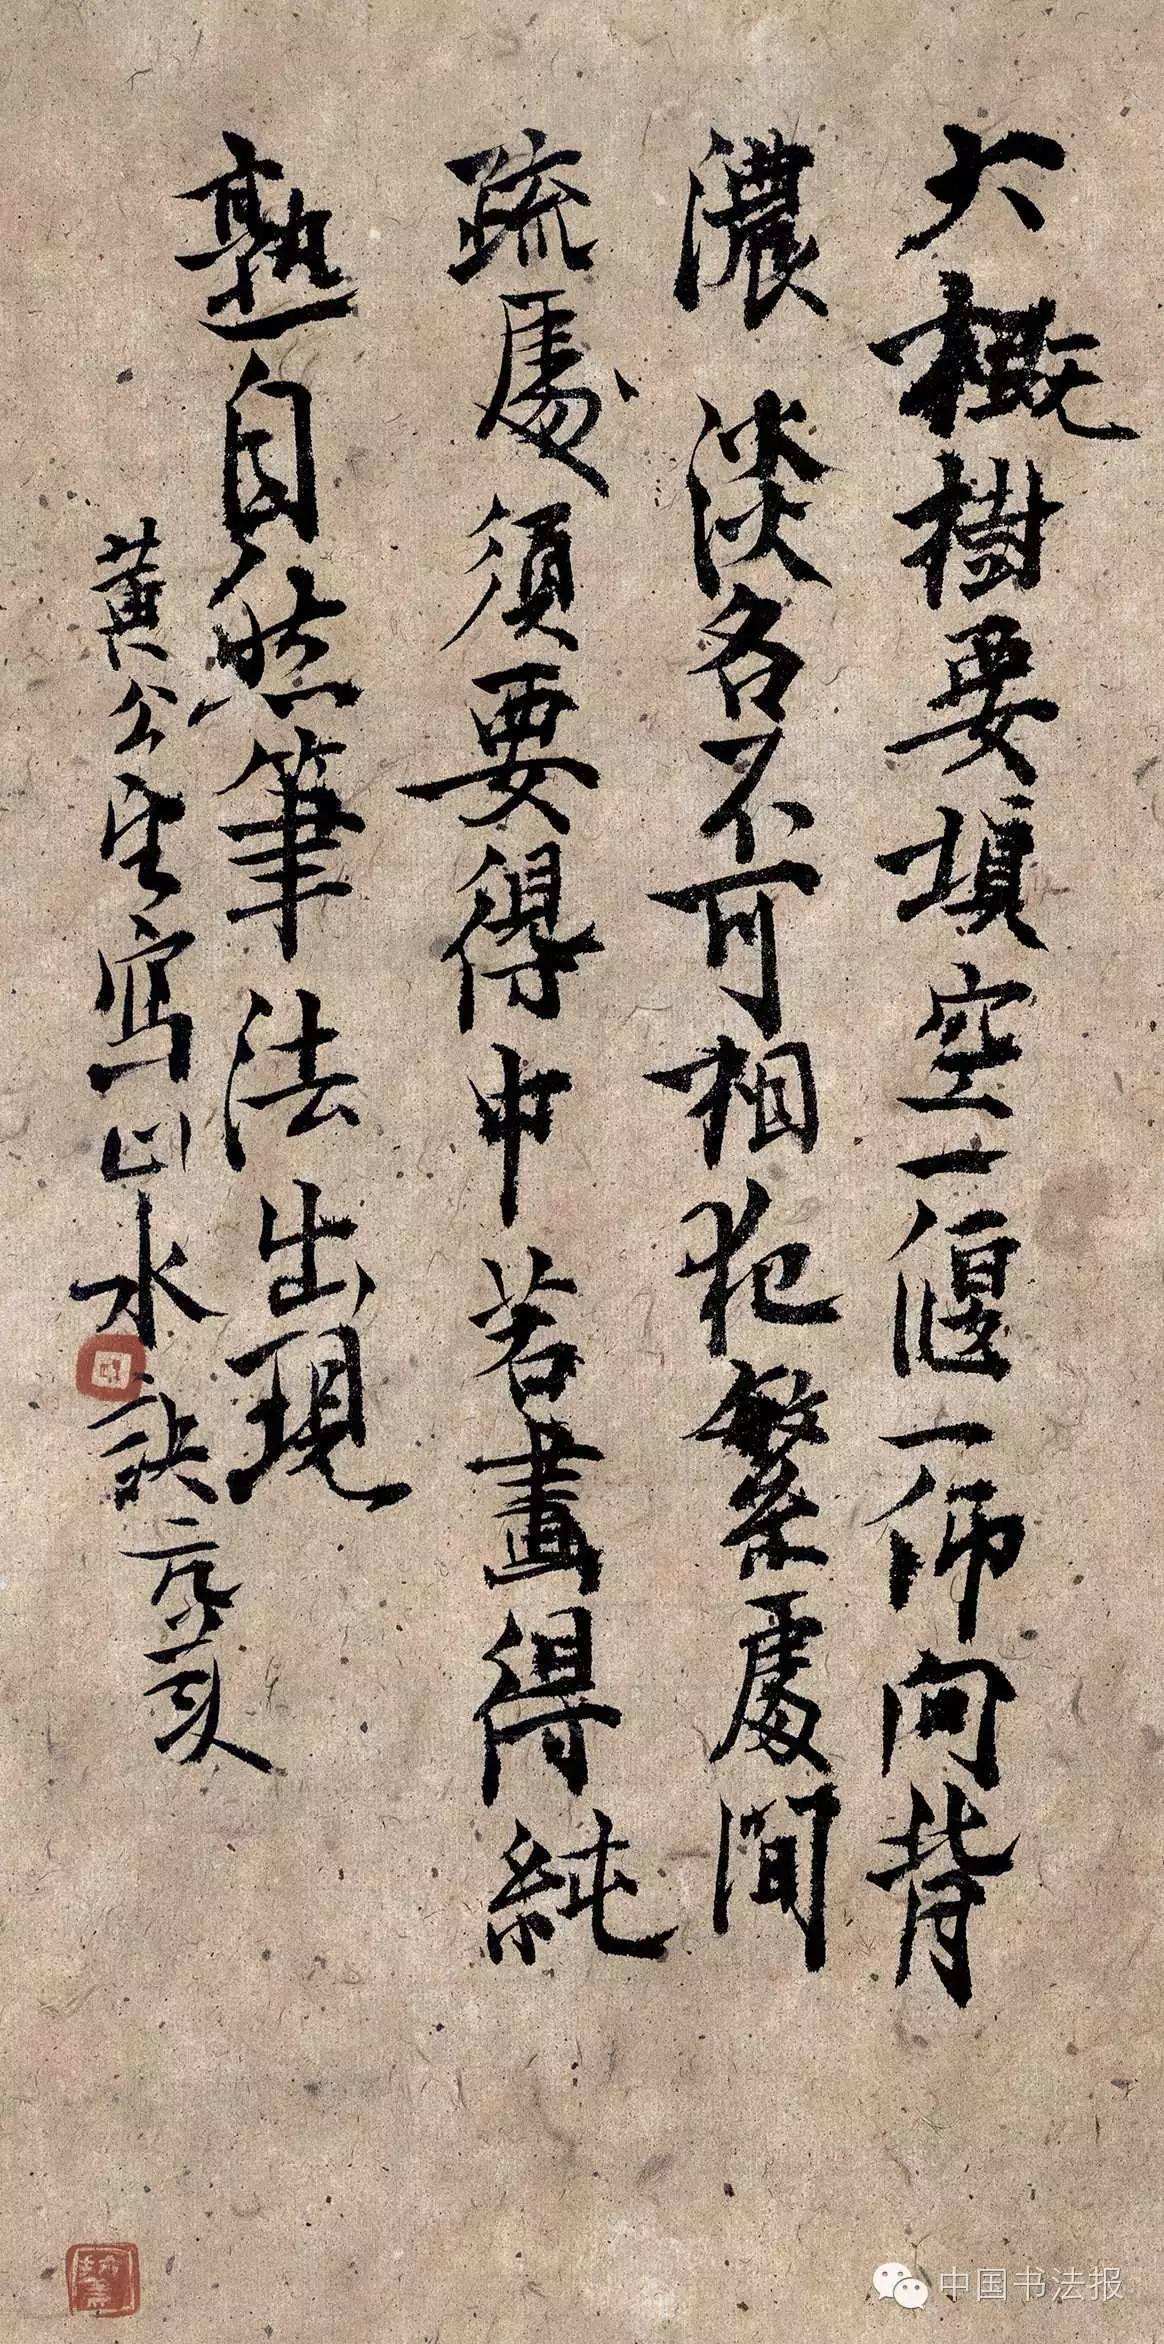 大概樹要填空一偃一仰向背
濃淡各不可相犯繁處間
疏處須要得中若畫得純
熟自然筆法出現
黃公望寫山水訣
中国书法报